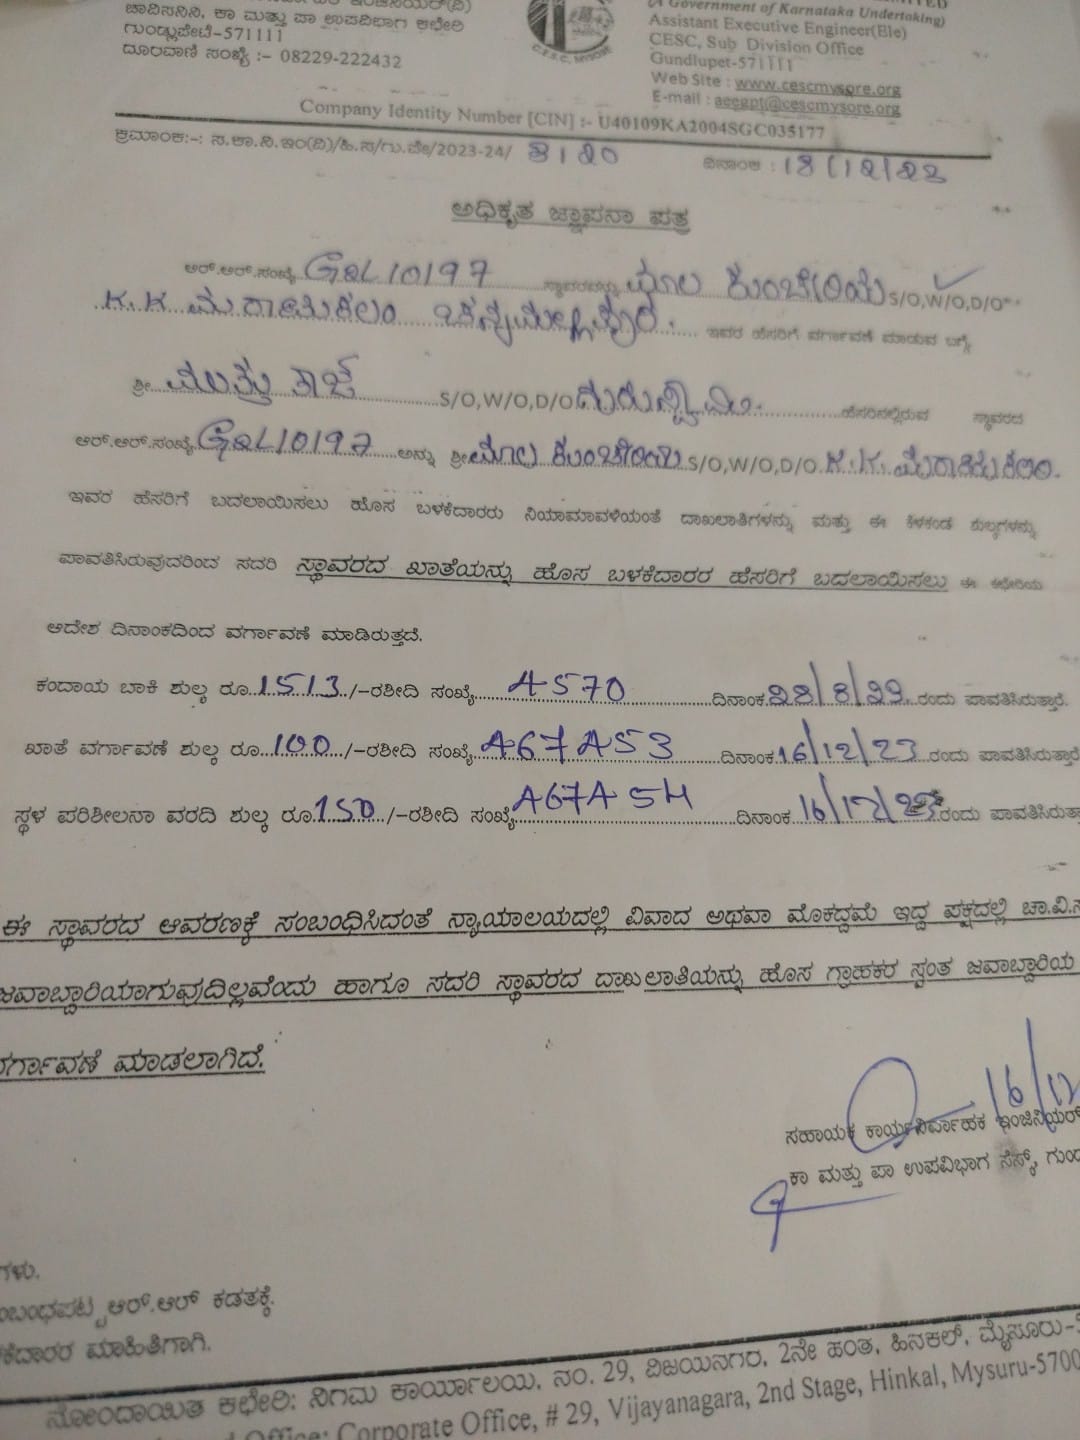 ಚಾವಿಸನಿನಿ, ಕಾ ಮತ್ತು ಪಾ ಉಪವಿಭಾಗ ಕಛೇರಿ
ಗುಂಡ್ಲುಪೇಟೆ-571111
ದೂರವಾಣಿ ಸಂಖ್ಯೆ :- 08229-222432
C.E.S.C, MYSORE
(A Government of Karnataka Undertaking)
Assistant Executive Engineer(Ele)
CESC, Sub Division Office
Gundlupet-571111
Web Site : www.cescmysore.org
E-mail : aeegpt@cescmysore.org
Company Identity Number [CIN] :- U40109KA2004SGC035177
ಕ್ರಮಾಂಕ:-: ಸ.ಕಾ.ನಿ.ಇಂ(ವಿ)/ಹಿ.ಸ/ಗು.ಪೇ/2023-24/ 3120 ದಿನಾಂಕ : 18/12/23
ಅಧಿಕೃತ ಜ್ಞಾಪನಾ ಪತ್ರ
ಆರ್.ಆರ್.ಸಂಖ್ಯೆ GBL10197 ಸ್ಥಾವರವನ್ನು S/O,W/O,D/O
K.K. ಇವರ ಹೆಸರಿಗೆ ವರ್ಗಾವಣೆ ಮಾಡುವ ಬಗ್ಗೆ
ಶ್ರೀ ಮುತ್ತು ರಾಜ್ S/O,W/O,D/O ಗುರುಸ್ವಾಮಿ ಹೆಸರಿನಲ್ಲಿರುವ ಸ್ಥಾವರದ
ಆರ್.ಆರ್.ಸಂಖ್ಯೆ GBL10197 ಅನ್ನು ಶ್ರೀ S/O,W/O,D/O K.K.
ಇವರ ಹೆಸರಿಗೆ ಬದಲಾಯಿಸಲು ಹೊಸ ಬಳಕೆದಾರರು ನಿಯಾಮಾವಳಿಯಂತೆ ದಾಖಲಾತಿಗಳನ್ನು ಮತ್ತು ಈ ಕೆಳಕಂಡ ಶುಲ್ಕಗಳನ್ನು
ಪಾವತಿಸಿರುವುದರಿಂದ ಸದರಿ ಸ್ಥಾವರದ ಖಾತೆಯನ್ನು ಹೊಸ ಬಳಕೆದಾರರ ಹೆಸರಿಗೆ ಬದಲಾಯಿಸಲು ಈ ಕಛೇರಿಯ
ಆದೇಶ ದಿನಾಂಕದಿಂದ ವರ್ಗಾವಣೆ ಮಾಡಿರುತ್ತದೆ.
ಕಂದಾಯ ಬಾಕಿ ಶುಲ್ಕ ರೂ 1513 /-ರಶೀದಿ ಸಂಖ್ಯೆ A570 ದಿನಾಂಕ 28/8/22 ರಂದು ಪಾವತಿಸಿರುತ್ತಾರೆ.
ಖಾತೆ ವರ್ಗಾವಣೆ ಶುಲ್ಕ ರೂ 100 /-ರಶೀದಿ ಸಂಖ್ಯೆ A67A53 ದಿನಾಂಕ 16/12/23 ರಂದು ಪಾವತಿಸಿರುತ್ತಾರೆ
ಸ್ಥಳ ಪರಿಶೀಲನಾ ವರದಿ ಶುಲ್ಕ ರೂ 150 /-ರಶೀದಿ ಸಂಖ್ಯೆ A67A54 ದಿನಾಂಕ 16/12/23 ರಂದು
ಈ ಸ್ಥಾವರದ ಆವರಣಕ್ಕೆ ಸಂಬಂಧಿಸಿದಂತೆ ನ್ಯಾಯಾಲಯದಲ್ಲಿ ವಿವಾದ ಅಥವಾ ಮೊಕದ್ದಮೆ ಇದ್ದ ಪಕ್ಷದಲ್ಲಿ ಚಾ.ವಿ.
ಜವಾಬ್ದಾರಿಯಾಗುವುದಿಲ್ಲವೆಂದು ಹಾಗೂ ಸದರಿ ಸ್ಥಾವರದ ದಾಖಲಾತಿಯನ್ನು ಹೊಸ ಗ್ರಾಹಕರ ಸ್ವಂತ ಜವಾಬ್ದಾರಿಯ
ವರ್ಗಾವಣೆ ಮಾಡಲಾಗಿದೆ.
16/12
ಸಹಾಯಕ ಕಾರ್ಯನಿರ್ವಾಹಕ ಇಂಜಿನಿಯರ್
ಕಾ ಮತ್ತು ಪಾ ಉಪವಿಭಾಗ ಸೆಸ್ಕ್, ಗುಂಡ
ಗಳು.
ಂಬಂಧಪಟ್ಟ ಆರ್.ಆರ್ ಕಡತಕ್ಕೆ.
ಕೆದಾರರ ಮಾಹಿತಿಗಾಗಿ.
ನೋಂದಾಯಿತ ಕಛೇರಿ: ನಿಗಮ ಕಾರ್ಯಾಲಯ, ನಂ. 29, ವಿಜಯನಗರ, 2ನೇ ಹಂತ, ಹಿನಕಲ್, ಮೈಸೂರು-5
Office: Corporate Office, # 29, Vijayanagara, 2nd Stage, Hinkal, Mysuru-5700